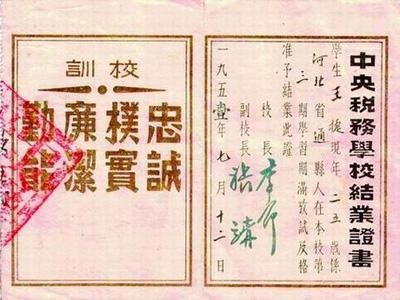 中央税務學校結業證書
學生王捷現年二五歲係
河北省通縣人在本校第
三期學習期滿攷試及格
准予結業此證
校長李予昂
副校長
一九五壹年七月十二日
校訓
忠誠
樸實
廉潔
勤能